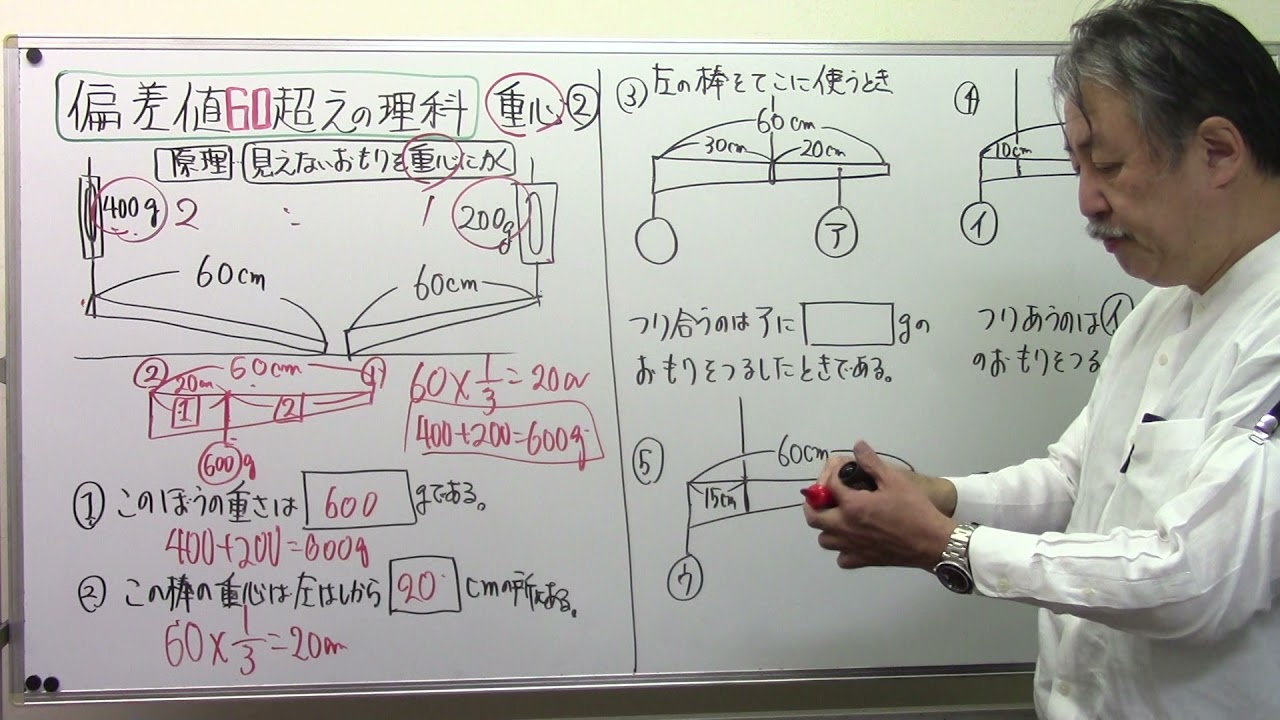 偏差値60超えの理科 重心②
原理 見えないおもりを重心にかく
400g 2 : 1 200g
60cm 60cm
② 60cm ①
20cm
1 2
600g
60×1/3=20cm
400+200=600g
① このぼうの重さは 600 gである。
400+200=600g
② この棒の重心は左はしから 20 cmの所にある。
60×1/3=20cm
③ 左の棒をてこに使うとき
60cm
30cm 20cm
ア
つり合うのはアに gの
おもりをつるしたときである。
④
10cm
イ
つりあうのはイ
のおもりをつる
⑤
60cm
15cm
ウ